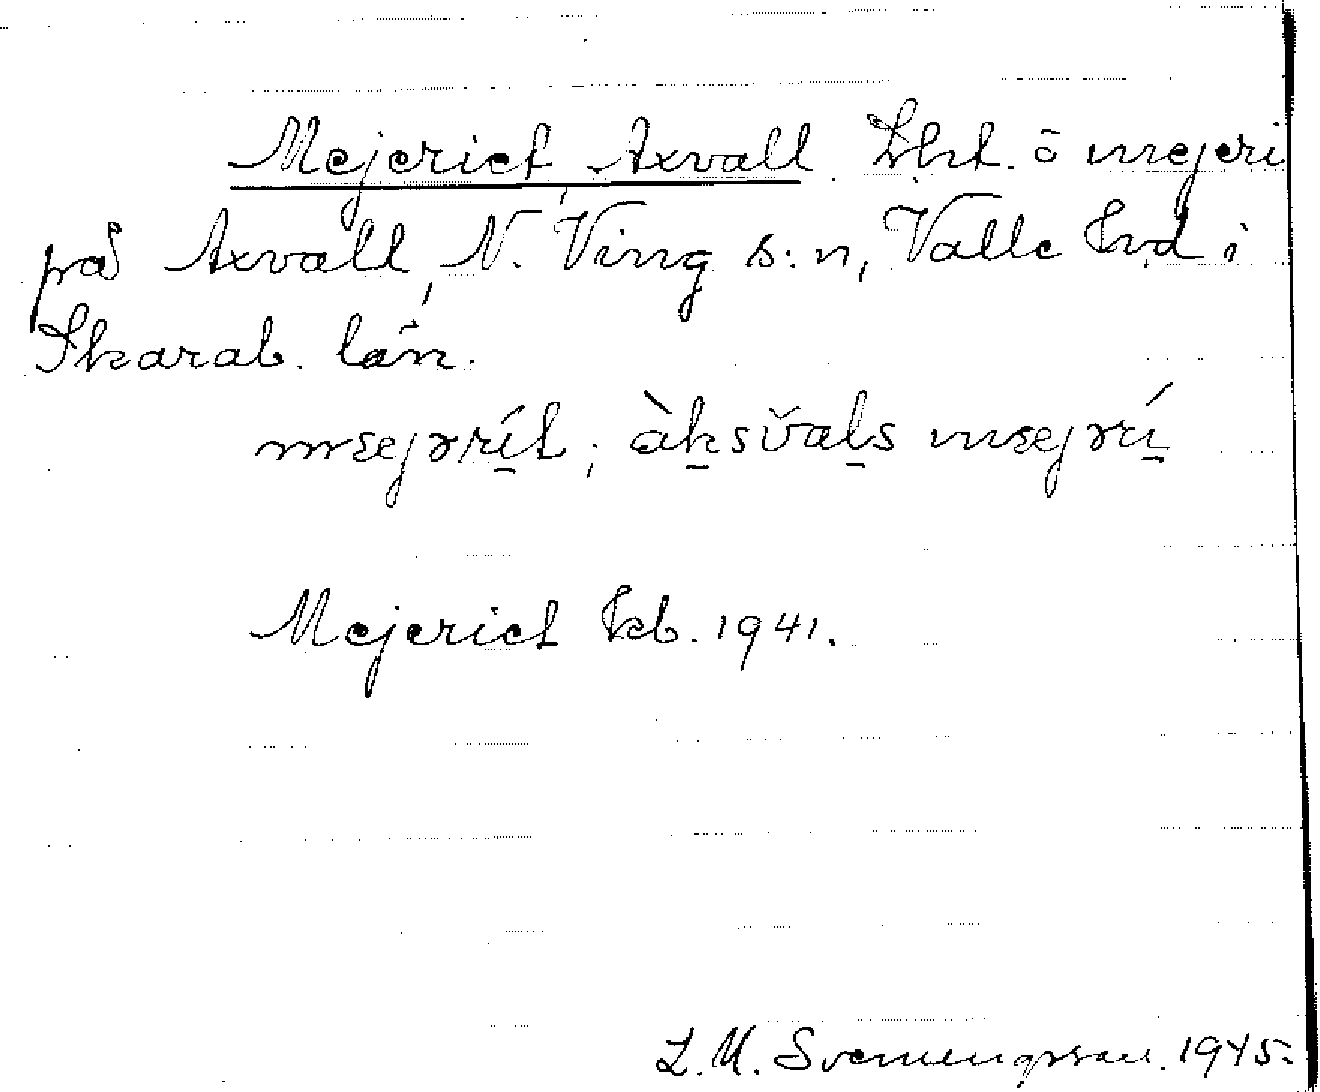 Mejeriet, Axvall. Lht. o mejeri
på Axvall, N. Ving s:n, Valle hd i
Skarab. län.
mejerít; àksvals mejərí
Mejeriet kb. 1941.
L. M. Svenungsson. 1945.